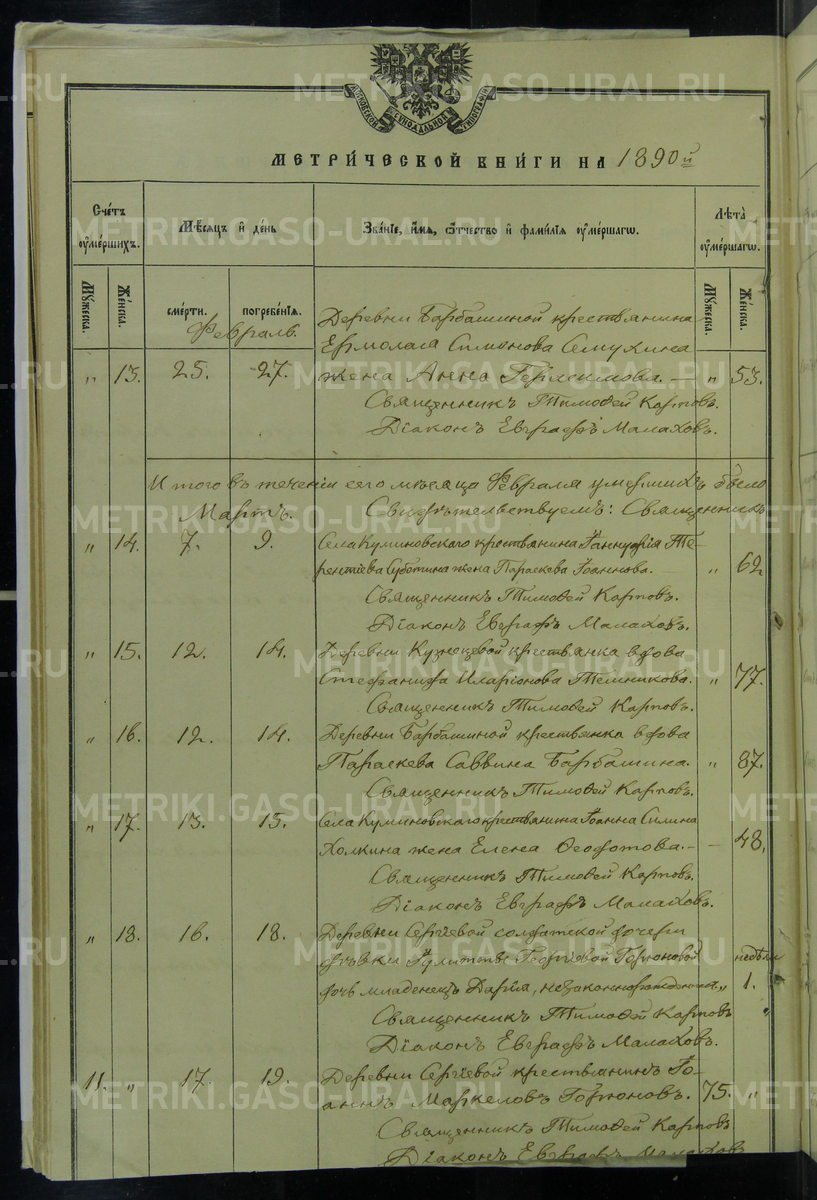 МОСКОВСКОЙ СѴНОДАЛЬНОЙ ТИПОГРАФІИ
МЕТРИ́ЧЕСКОЙ КНИ́ГИ НА 1890й
Сче́тъ ᲂу҆ме́ршихъ.
Мѣ́сяцъ и҆ де́нь
Зва́нїе, и҆́мя, ѻ҆́тчество и҆ фами́лїя ᲂу҆ме́ршагѡ.
Лѣ́та ᲂу҆ме́ршагѡ.
Мꙋ́жеска.
Же́нска.
сме́рти.
погребе́нїя.
Мꙋ́жеска.
Же́нска.
Февраль.
Деревни Барбашиной крестьянина
Ермолая Симонова Семухина
" 13. 25. 27. жена Анна Герасимова. — " 53.
Священникъ Тимоѳей Карповъ.
Діаконъ Евграфъ Малаховъ.
Итого въ теченіи сего мѣсяца Февраля умершихъ было
Мартъ. Свидѣтельствуемъ: Священникъ
" 14. 7. 9. Села Куминовскаго крестьянина Іаннуарія Те-
рентіева Суботина жена Параскева Іоаннова. — " 62
Священникъ Тимоѳей Карповъ.
Діаконъ Евграфъ Малаховъ.
" 15. 12. 14. Деревни Кузнецовой крестьянка вдова
Стефанида Иларіонова Темникова. " 77.
Священникъ Тимоѳей Карповъ.
" 16. 12. 14. Деревни Барбашиной крестьянка вдова
Параскева Саввина Барбашина. " 87.
Священникъ Тимоѳей Карповъ.
" 17. 13. 15. Села Куминовскаго крестьянина Іоанна Силина
Холкина жена Елена Ѳеодотова. — — 48.
Священникъ Тимоѳей Карповъ.
Діаконъ Евграфъ Малаховъ.
" 18. 16. 18. Деревни Сергіевой солдатской дочери
дѣвки Іулитты Георгіевой Горюновой недѣли
дочь младенецъ Дарія, незаконнорожденная " 1.
Священникъ Тимоѳей Карповъ "
Діаконъ Евграфъ Малаховъ.
11. " 17. 19. Деревни Сергіевой крестьянинъ Іо-
аннъ Маркеловъ Горюновъ. 75. "
Священникъ Тимоѳей Карповъ
Діаконъ Евграфъ Малаховъ
METRIKI.GASO-URAL.RU